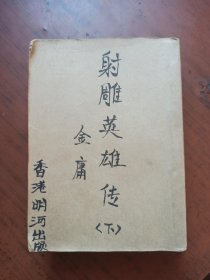 射雕英雄传
金庸
〈下〉
香港明河出版